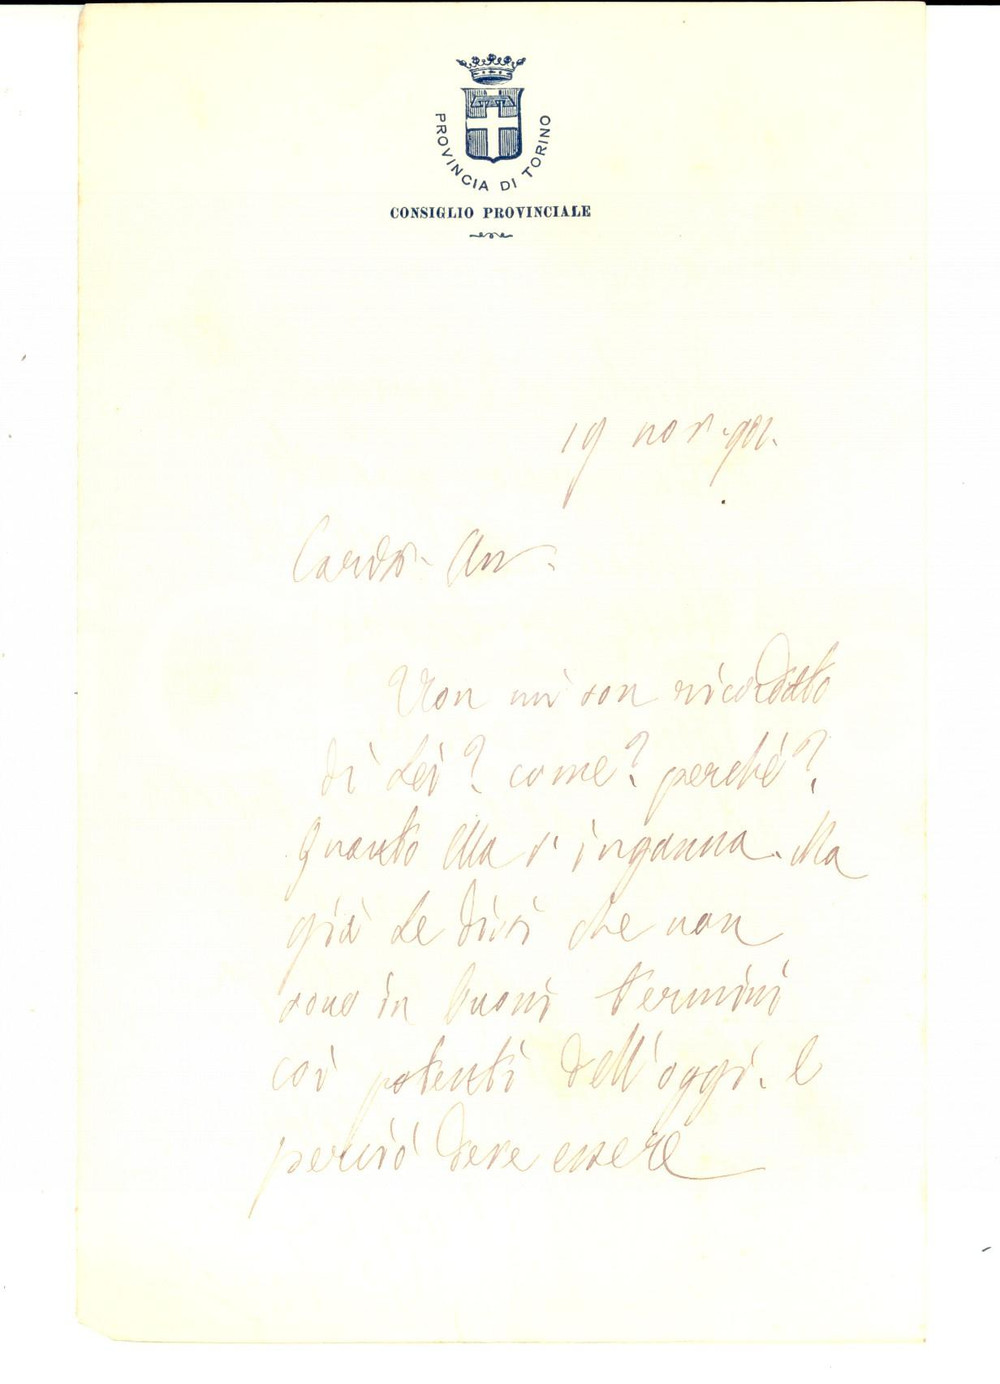 PROVINCIA DI TORINO
CONSIGLIO PROVINCIALE
19 nov. 901.
Non mi son ricordato
di Lei? come? perché?
Quanto Ella s'inganna. Ma
già Le dissi che non
sono in buoni termini
coi potenti dell'oggi. e
perciò deve essere